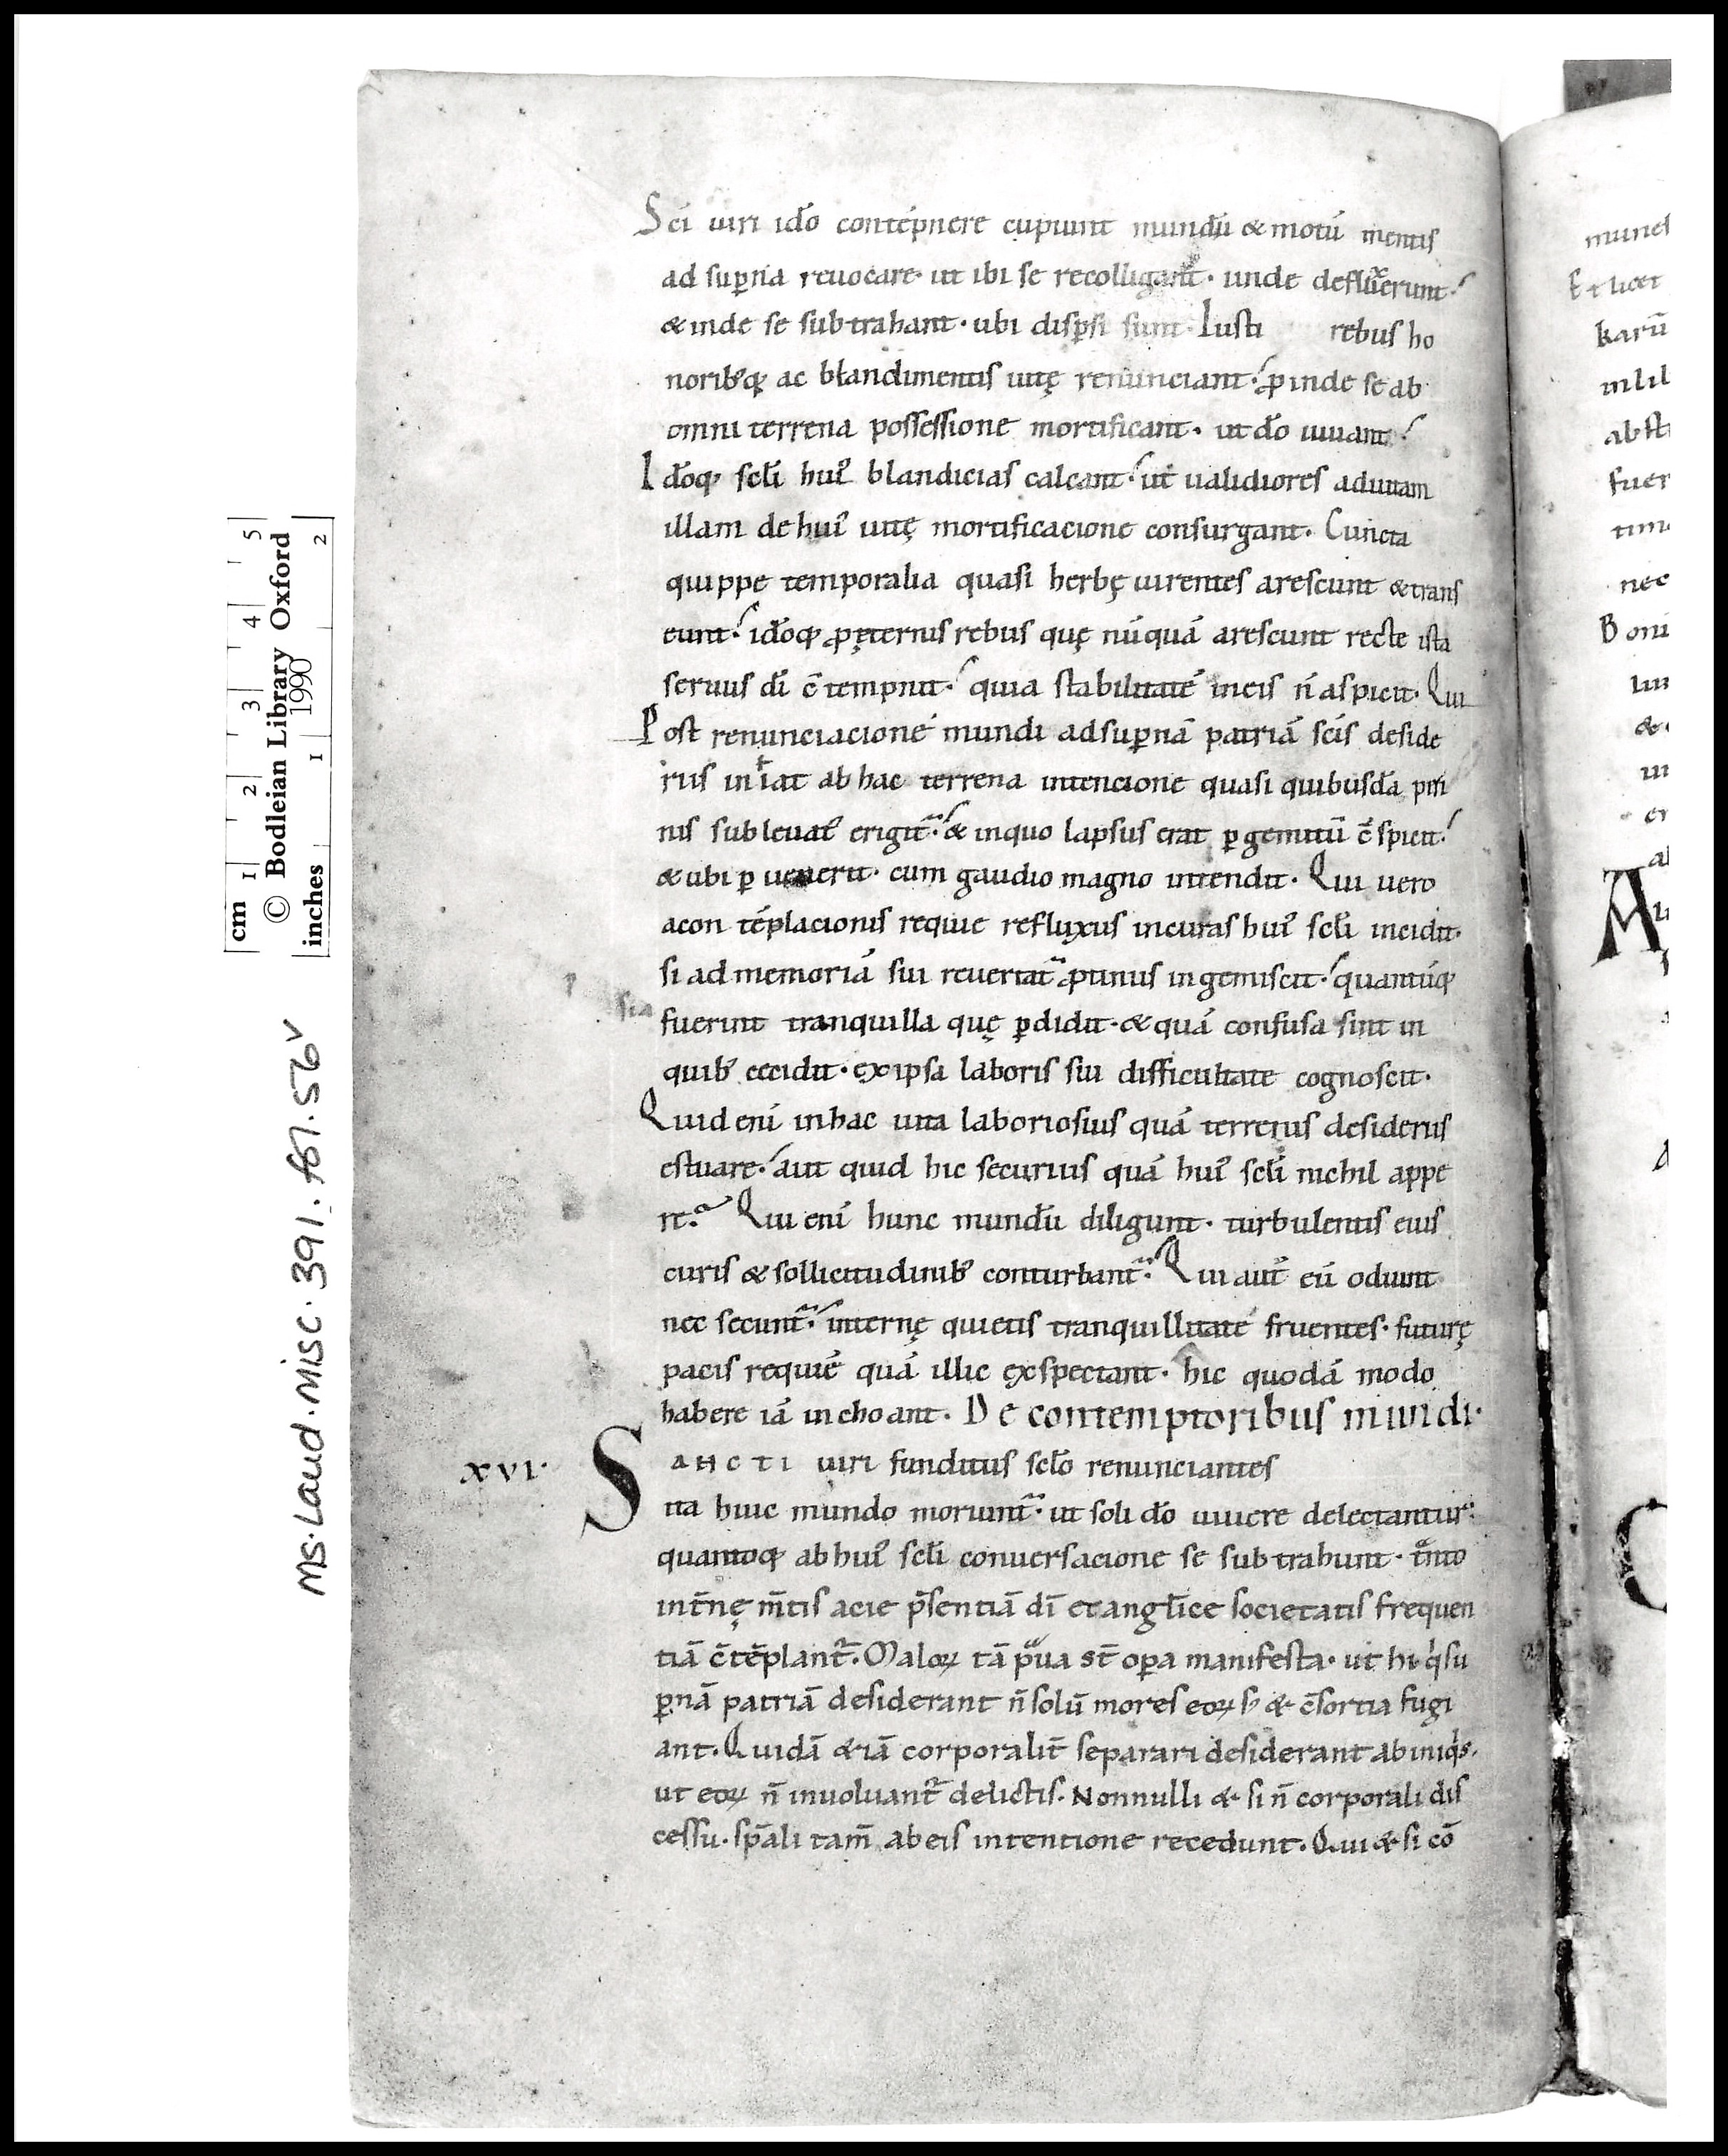 Scı̄ uiri id̄o contēpnere cupiunt mundū & motū mentis
ad sup̱na reuocare· ut ibi se recolligant· unde defluxerunt·
& inde se subtrahant· ubi disp̱si sunt· Iusti rebus ho
noribꝰq; ac blandimentis uitę renunciant· ꝓinde se ab
omni terrena possessione mortificant· ut d̄o uiuant·
Id̄oq; scl̄i huiꝰ blandicias calcant· ut ualidiores ad uitam
illam de huiꝰ uitę mortificacione consurgant· Cuncta
quippe temporalia quasi herbę uirentes arescunt & trans
eunt· id̄oq; ꝓ ęternis rebus quę nūquā arescunt recte ista
seruus dı̄ c̄tempnit· quia stabilitatē in eis n̄ aspicit· Qui
Post renunciacionē mundi ad sup̱nā patriā scı̄s deside
riis inhiat ab hac terrena intencione quasi quibusdā pin
nis subleuatꝰ erigit᷑· & in quo lapsus erat ꝑ gemitū c̄spicit·
& ubi ꝑuenerit· cum gaudio magno intendit· Qui uero
a contēplacionis requie refluxus in curas huiꝰ scl̄i incidit·
si ad memoriā sui reuertat᷑ ꝓtinus ingemiscit· quantūq;
fuerint tranquilla quę ꝑdidit· & quā confusa sint in
quibꝰ cecidit· ex ipsa laboris sui difficultate cognoscit·
Quid enī in hac uita laboriosius quā terrenis desideriis
estuare· aut quid hic securius quā huiꝰ scl̄i nichil appe
re· Qui enī hunc mundū diligunt· turbulentis eius
curis & sollicitudinibꝰ conturbant᷑· Qui autē eū odiunt
nec secunt᷑· internę quietis tranquillitatē fruentes· futurę
pacis requiē quā illic exspectant· hic quodā modo
habere iā inchoant· De contemptoribus mundi·
xvi· Sancti uiri funditus scl̄o renunciantes
ita huic mundo moriunt᷑· ut soli d̄o uiuere delectantur·
quantoq; ab huiꝰ scl̄i conuersacione se subtrahunt· tanto
int̄nę m̄tis acie p̄sentiā dı̄ et angl̄ice societatis frequen
tiā c̄tēplant᷑· Maloꝝ tā pͣua st̄ oꝑa manifesta· ut hi q̇ su
ꝑnā patriā desiderant n̄ solū mores eoꝝ sꝫ & c̄sortia fugi
ant· Quidā &iā corporalit̄ separari desiderant ab iniq̇s·
ut eoꝝ n̄ inuoluant᷑ delictis· Nonnulli & si n̄ corporali dis
cessu· sp̄ali tam̄ ab eis intentione recedunt· Qui & si cō
MS. Laud. Misc. 391. fol. 56v
© Bodleian Library Oxford
1990
cm 1 2 3 4 5
inches 1 2